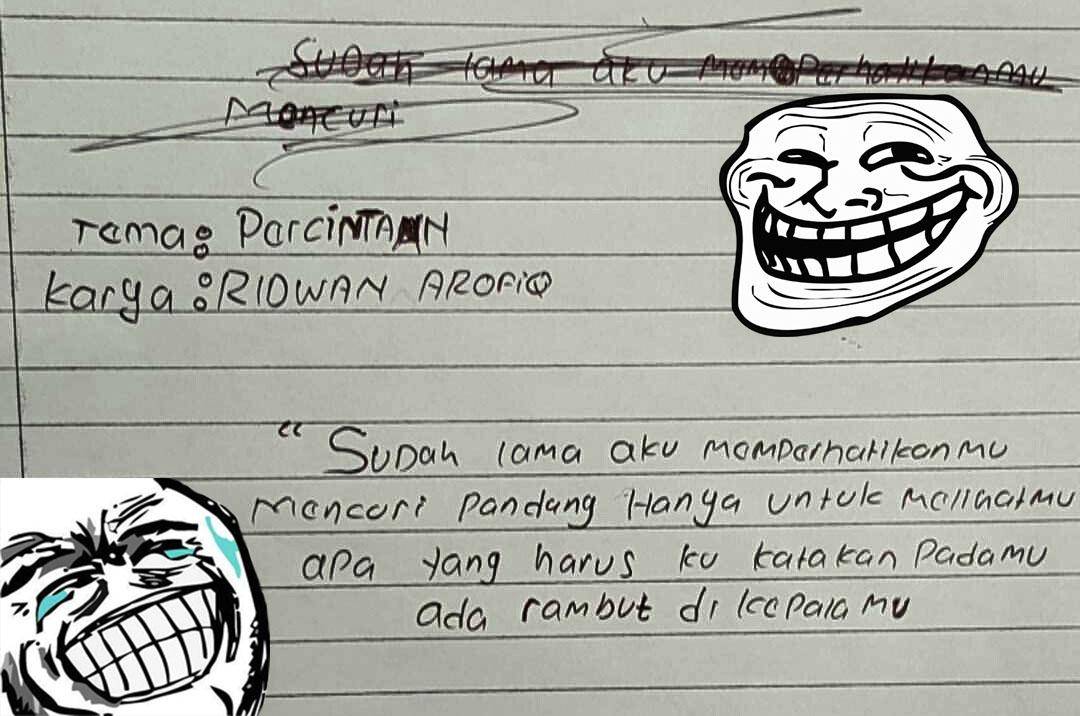 Sudah lama aku memperhatikanmu
Mencuri
Tema: PerciNTAAN
karya: RIDWAN AROFIQ
“ SUDah lama aku memperhatikanmu
mencuri pandang Hanya untuk melihatmu
apa yang harus ku katakan Padamu
ada rambut di kepala mu